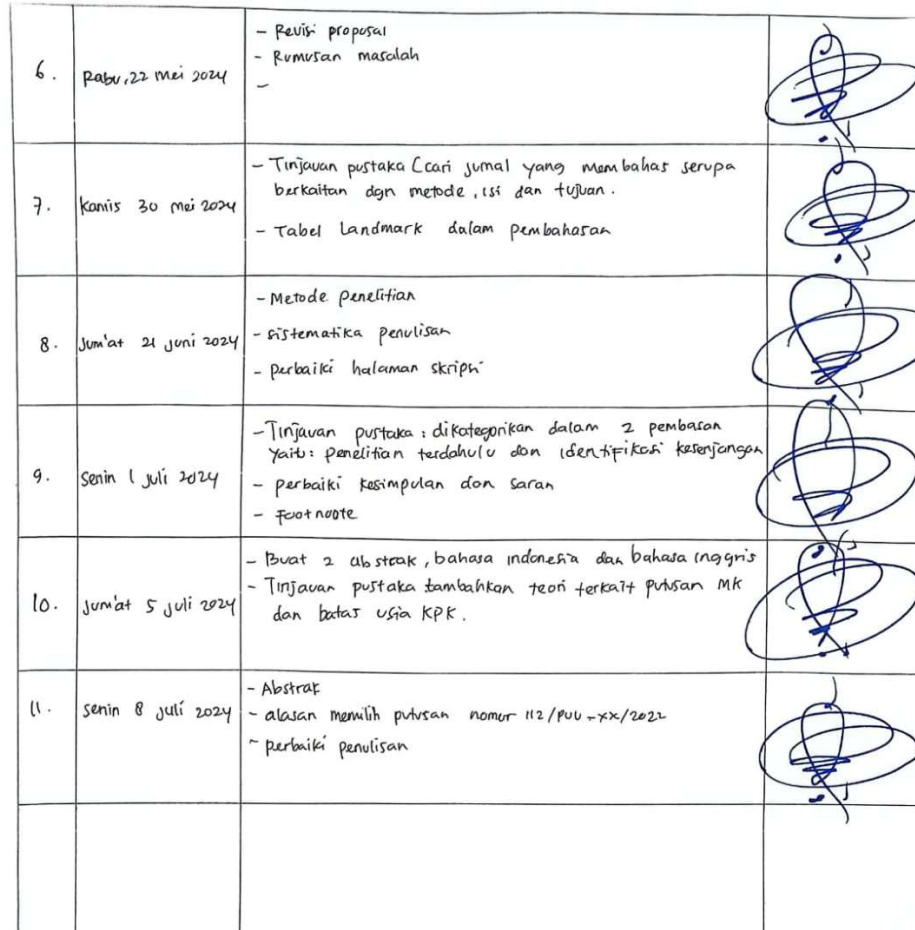 6. Rabu, 22 Mei 2024
- Revisi proposal
- Rumusan masalah
-
7. Kamis 30 mei 2024
- Tinjauan pustaka (cari jurnal yang membahas serupa
berkaitan dgn metode, isi dan tujuan.
- Tabel Landmark dalam pembahasan
8. Jum'at 21 juni 2024
- Metode penelitian
- sistematika penulisan
- perbaiki halaman skripsi
9. Senin 1 juli 2024
- Tinjauan pustaka : dikategorikan dalam 2 pembasan
yaitu: penelitian terdahulu dan identifikasi kesenjangan
- perbaiki kesimpulan dan saran
- Footnoote
10. Jum'at 5 juli 2024
- Buat 2 abstrak, bahasa indonesia dan bahasa inggris
- Tinjauan pustaka tambahkan teori terkait putusan MK
dan batas usia KPK.
11. Senin 8 juli 2024
- Abstrak
- alasan memilih putusan nomor 112/PUU-XX/2022
- perbaiki penulisan